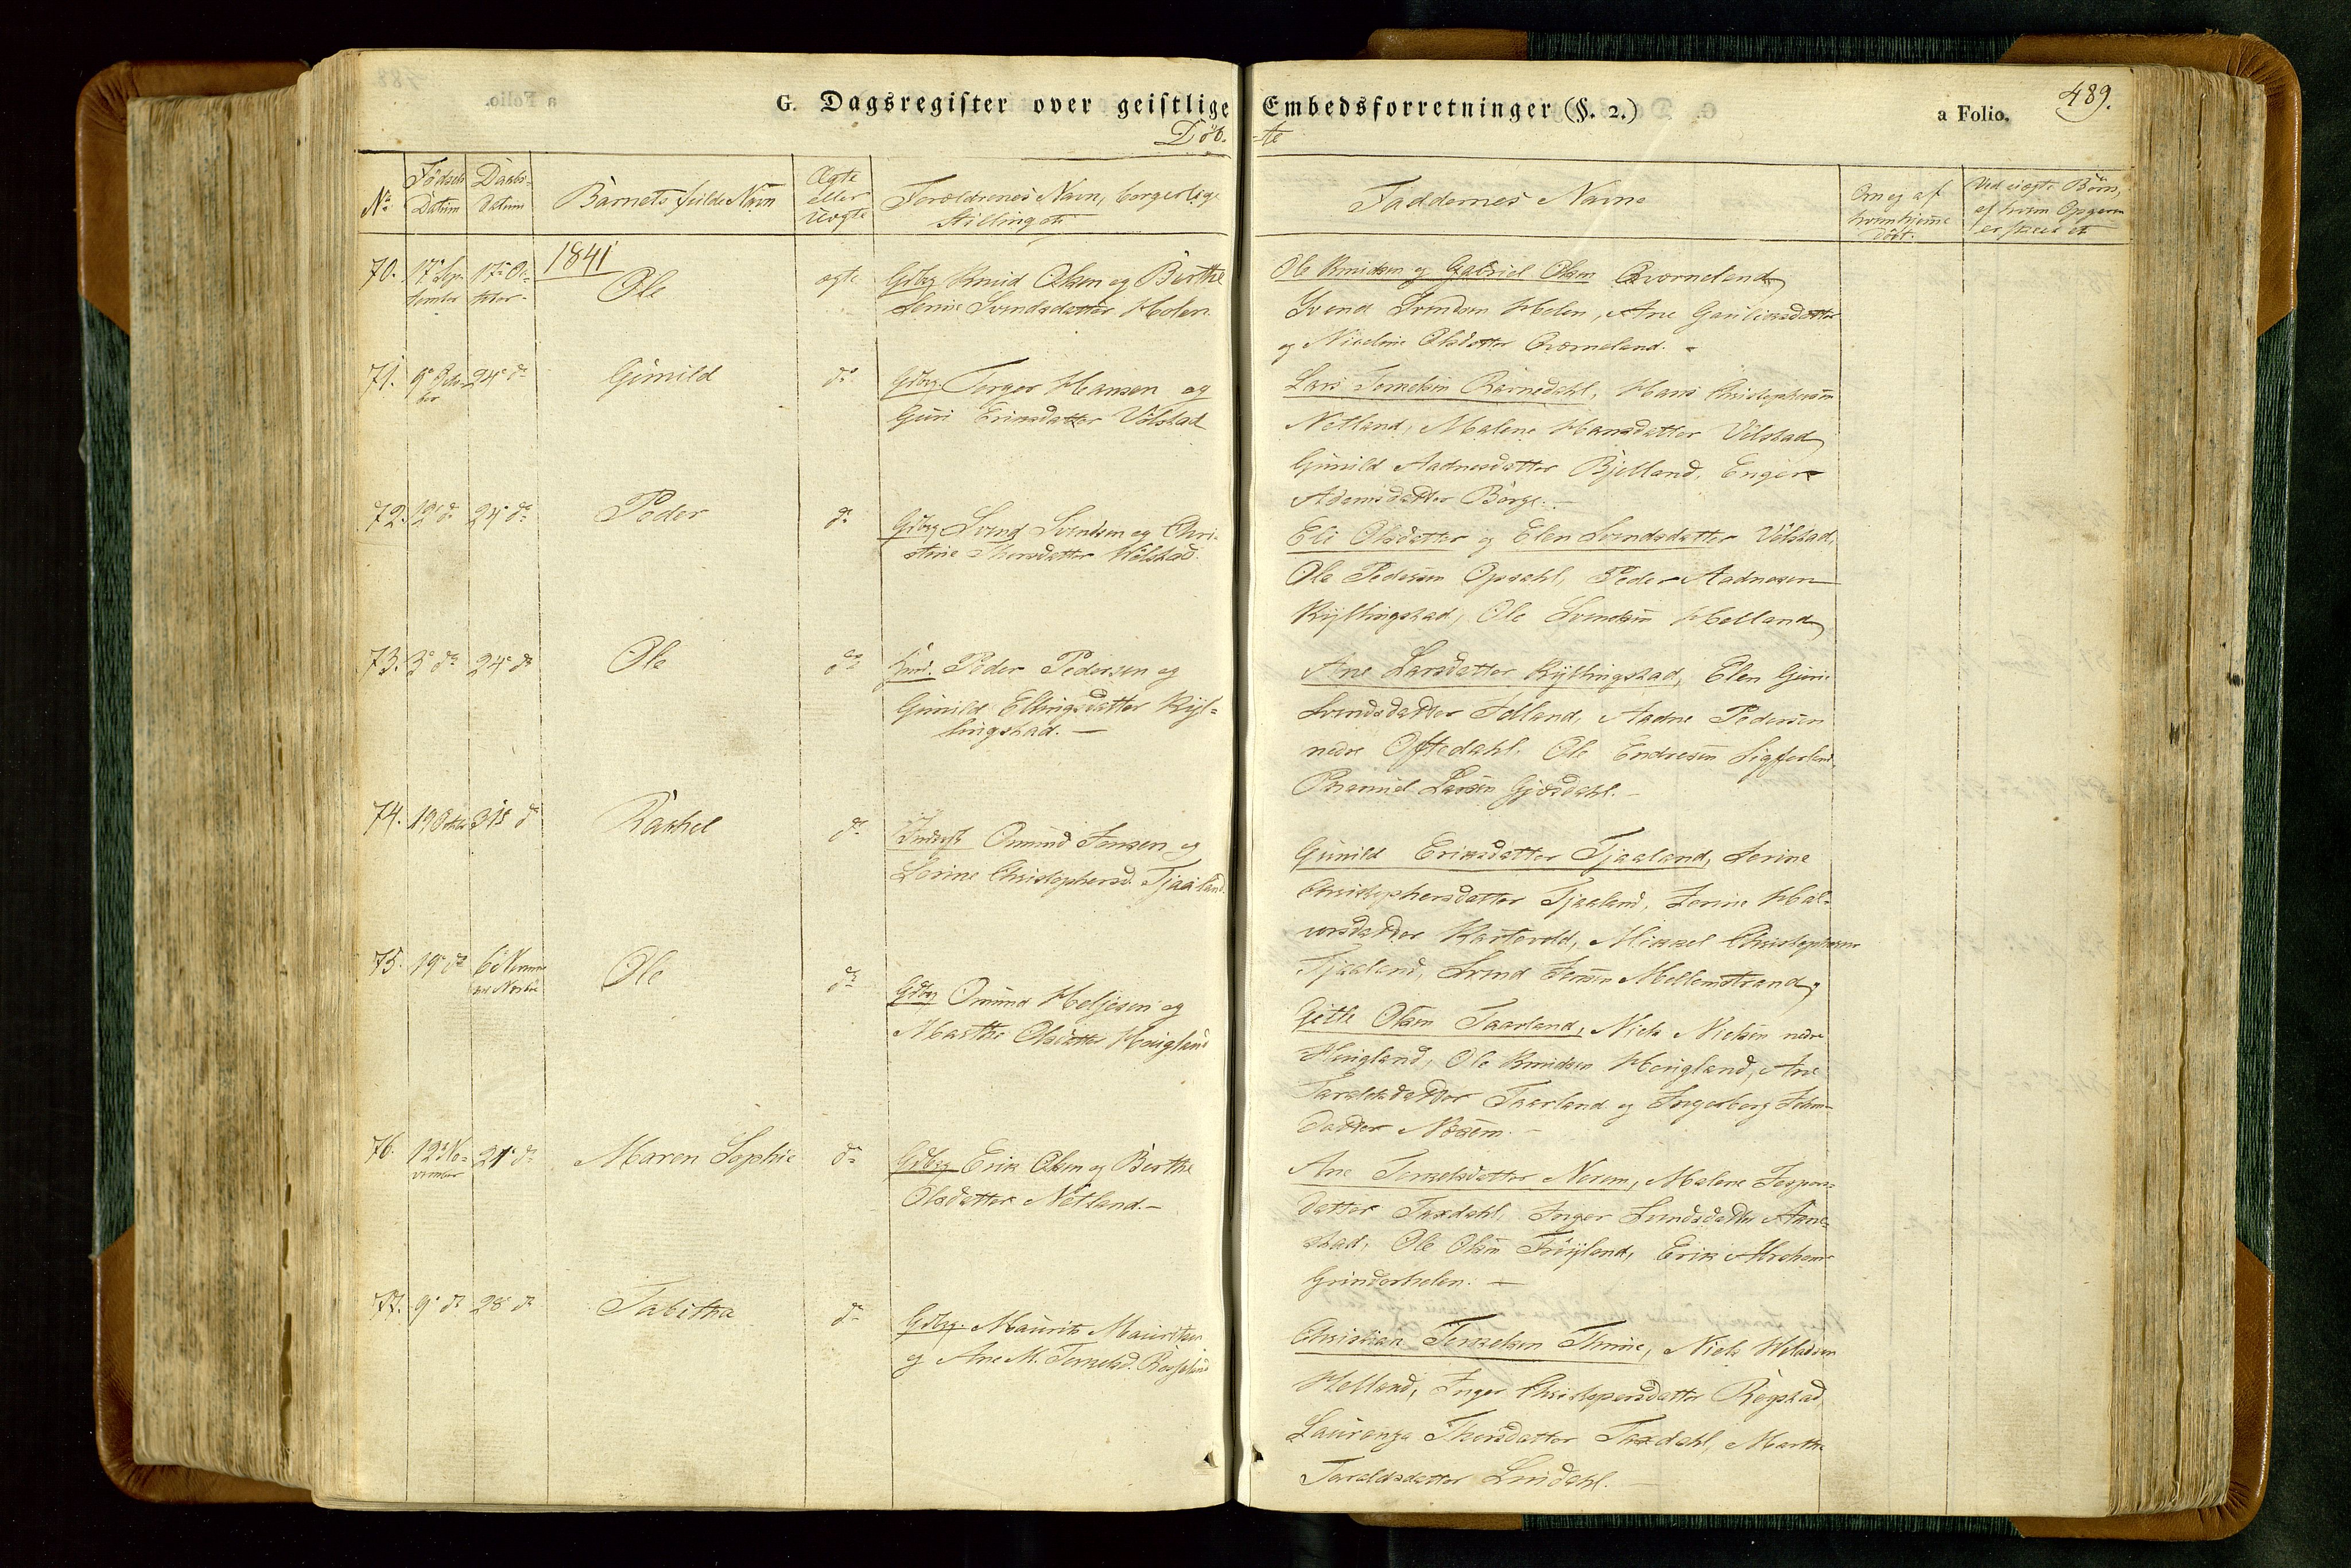 G. Dagsregister over geistlige Embedsforretninger (§. 2.) a Folio. 489.
Döb-te
No
Födsels Datum
Daabs-datum
Barnets fulde Navn
Ægte eller Uægte
Forældrenes Navn, borgerlige Stilling etc
Faddernes Navne
Om og af hvem hjemme döbt.
Ved uægte Börn,
1841
70.
17de Sep-tember
17de Oc-tober
Ole
ægte
Gdbrg Knud Olsen og Berthe
Svendsdatter Holen
Ole Knudsen og Gabriel Olsen Qværneland
Svend Svendsen Holen, Ane
og Nicoline Olsdatter Qværneland.
71.
9de Octo-ber
24de do
Gunild
do
Gdbrg. Torger Hansen og
Guri Eriksdatter Völstad
Lars Tønnesen Ravnedahl, Hans Christophersen
Netland, Malene Hansdatter Völstad
Gunild Aadnesdatter Bjelland, Enger
Adamsdatter Börge.
72.
12 do
24 do
Peder
do
Gdbrg Svend Svendsen og Chri-
stine Thorsdatter Völstad.
Eli Olsdatter og Elen Svendsdatter Völstad,
Ole Pedersen Opdahl, Peder Aadnesen
Kyllingstad, Ole Svendsen Helland
73.
3 do
24 do
Ole
do
Peder Pedersen og
Gunild Ellingsdatter Kyl-
lingstad.
Ane Larsdatter Kyllingstad, Elen Guri
Svendsdatter Idland, Aadne Pedersen
nedre Oftedahl, Ole Endresen
Larsen Gjesdahl.
74.
19 Octbr
31 do
Rakhel
do
Inderst Omund Jensen og
Serine Christophersd. Tjaaland.
Gunild Eriksdatter Tjaaland, Serine
Christophersdatter Tjaaland, Serine Hal-
vorsdatter, Mikkel Christophersen
Tjaaland, Svend Jensen Mellemstrand
75.
19 do
6 Novem
Ole
do
Gdbrg Omund Heljesen og
Marthe Olsdatter Höigland
Gitle Olsen Taarland, Niels Nielsen nedre
Höigland, Ole Knudsen Höigland, Ane
Taraldsdatter Taarland og Ingeborg
datter
76.
12 No-vember
21 do
Maren Sophie
do
Gdbrg Erik Olsen og Berthe
Olsdatter Netland.
Ane Tønnesdatter Norem, Malene Jespers-
datter Taxdahl, Inger Svendsdatter Aane-
stad, Ole Olsen Fröyland, Erik
77.
9 do
28 do
Tabitha
do
Gdbrg. Maurits Mauritsen
og Ane M.
Christian Tønnesen Thime, Niels
Helland, Inger Christophersdatter Rögstad,
Laurenze Thorsdatter Taxdahl, Marthe
Taraldsdatter Lindahl.